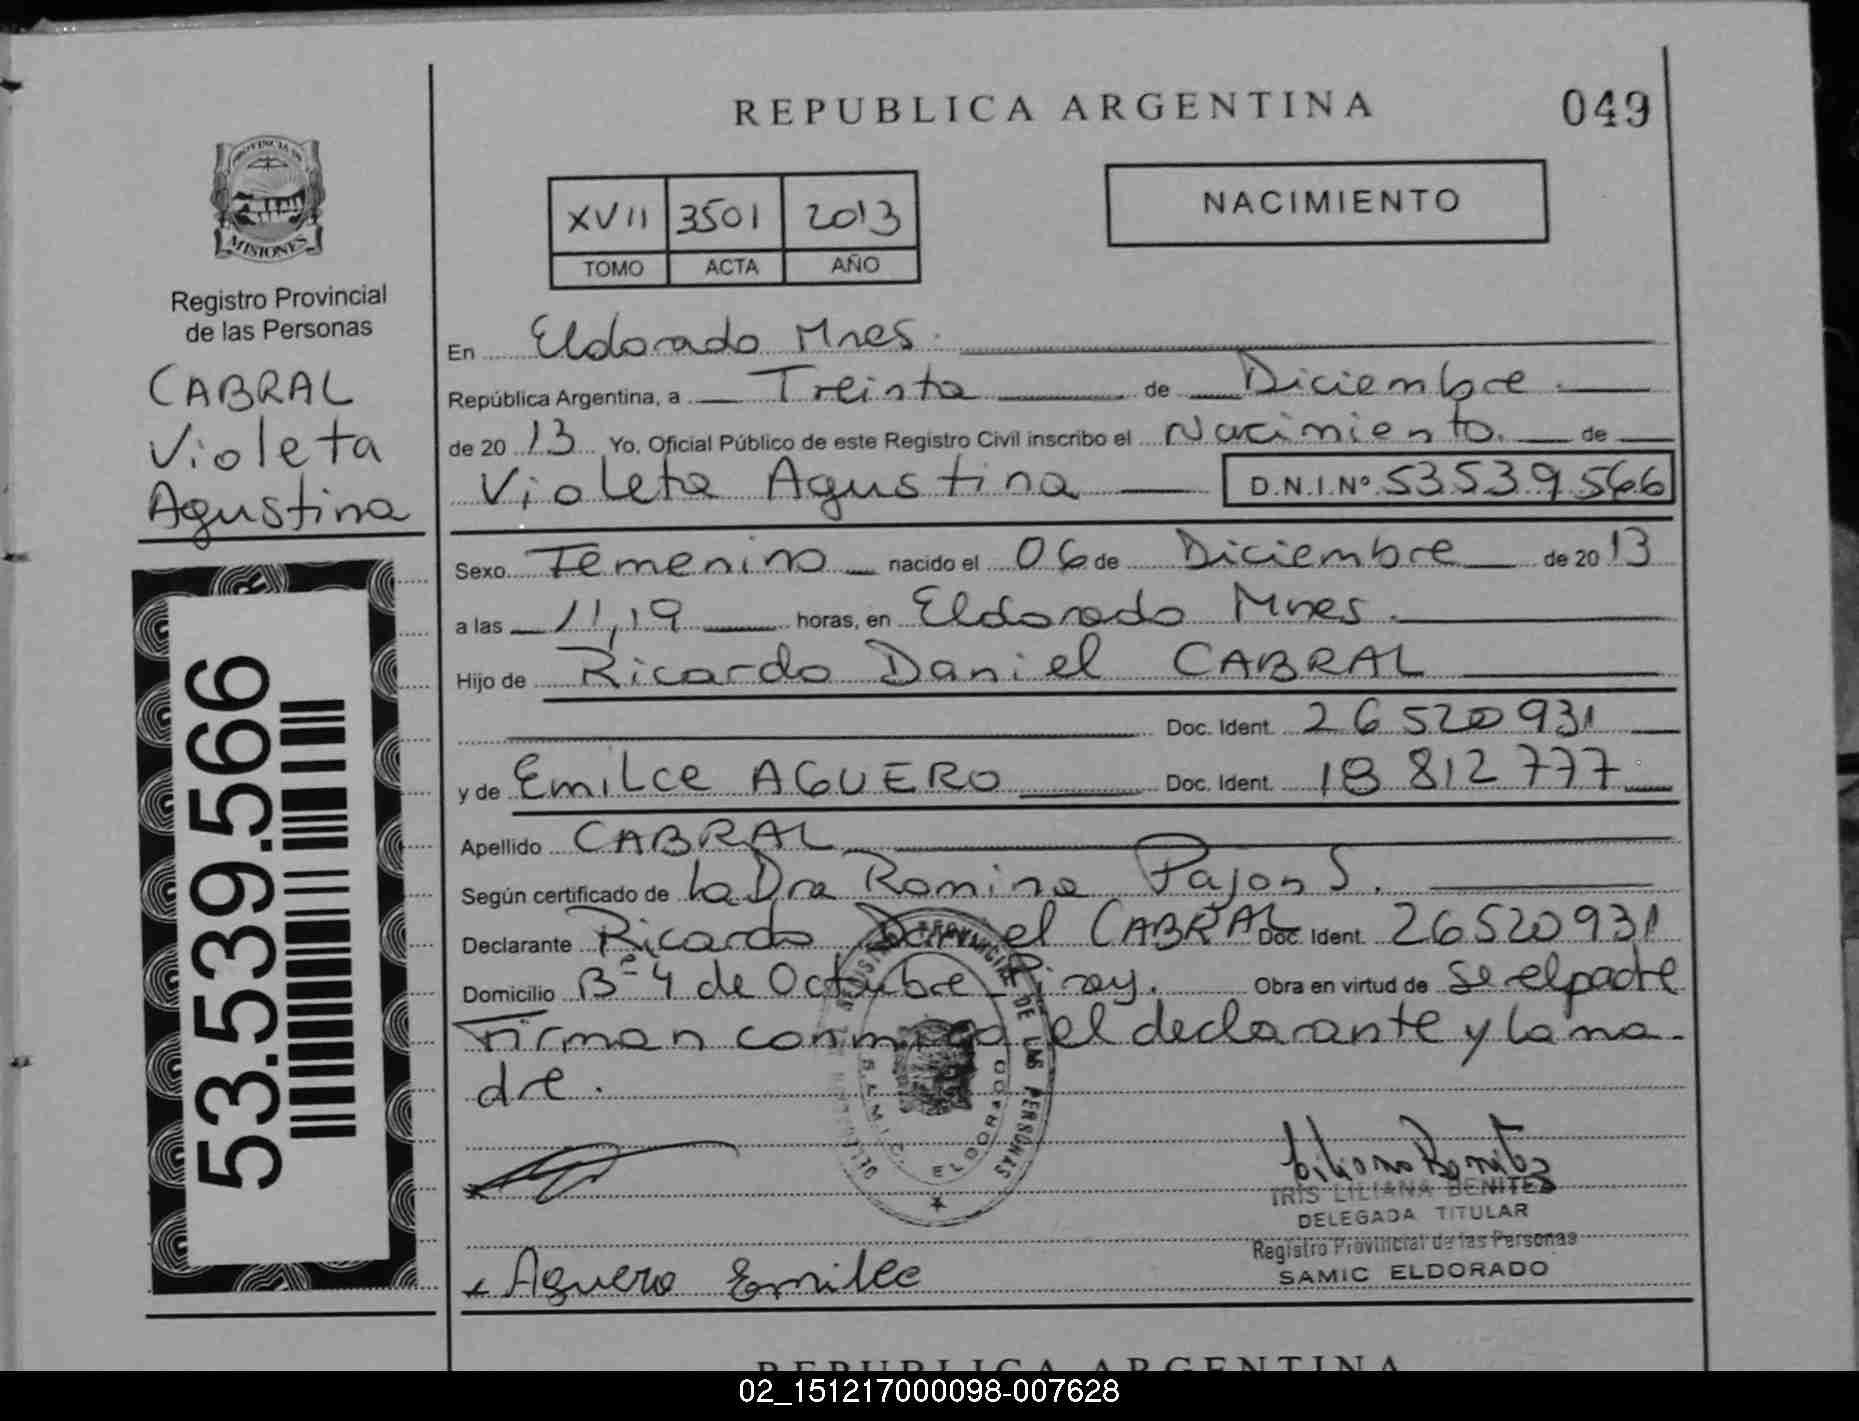 REPUBLICA ARGENTINA
049
PROVINCIA DE
MISIONES
Registro Provincial
de las Personas
CABRAL
Violeta
Agustina
53.539.566
XVII 3501 2013
TOMO ACTA AÑO
NACIMIENTO
En Eldorado Mnes.
República Argentina, a Treinta de Diciembre.
de 2013 Yo, Oficial Público de este Registro Civil inscribo el Nacimiento. de
Violeta Agustina D.N.I.Nº 53539566
Sexo Femenino nacido el 06 de Diciembre de 2013
a las 11,19 horas, en Eldorado Mnes.
Hijo de Ricardo Daniel CABRAL
Doc. Ident. 26520931
y de Emilce AGUERO Doc. Ident. 18 812 777
Apellido CABRAL
Según certificado de la Dra Romina Pajon S.
Declarante Ricardo Daniel CABRAL Doc. Ident. 26520931
Domicilio Bº 4 de Octubre Piray. Obra en virtud de Se el padre
Firman conmigo el declarante y la ma-
dre.
REGISTRO PROVINCIAL DE LAS PERSONAS
S.A.M.I.C. ELDORADO
Liliana Benitez
IRIS LILIANA BENITEZ
DELEGADA TITULAR
Registro Provincial de las Personas
SAMIC ELDORADO
Aguero Emilce
REPUBLICA ARGENTINA
02_151217000098-007628